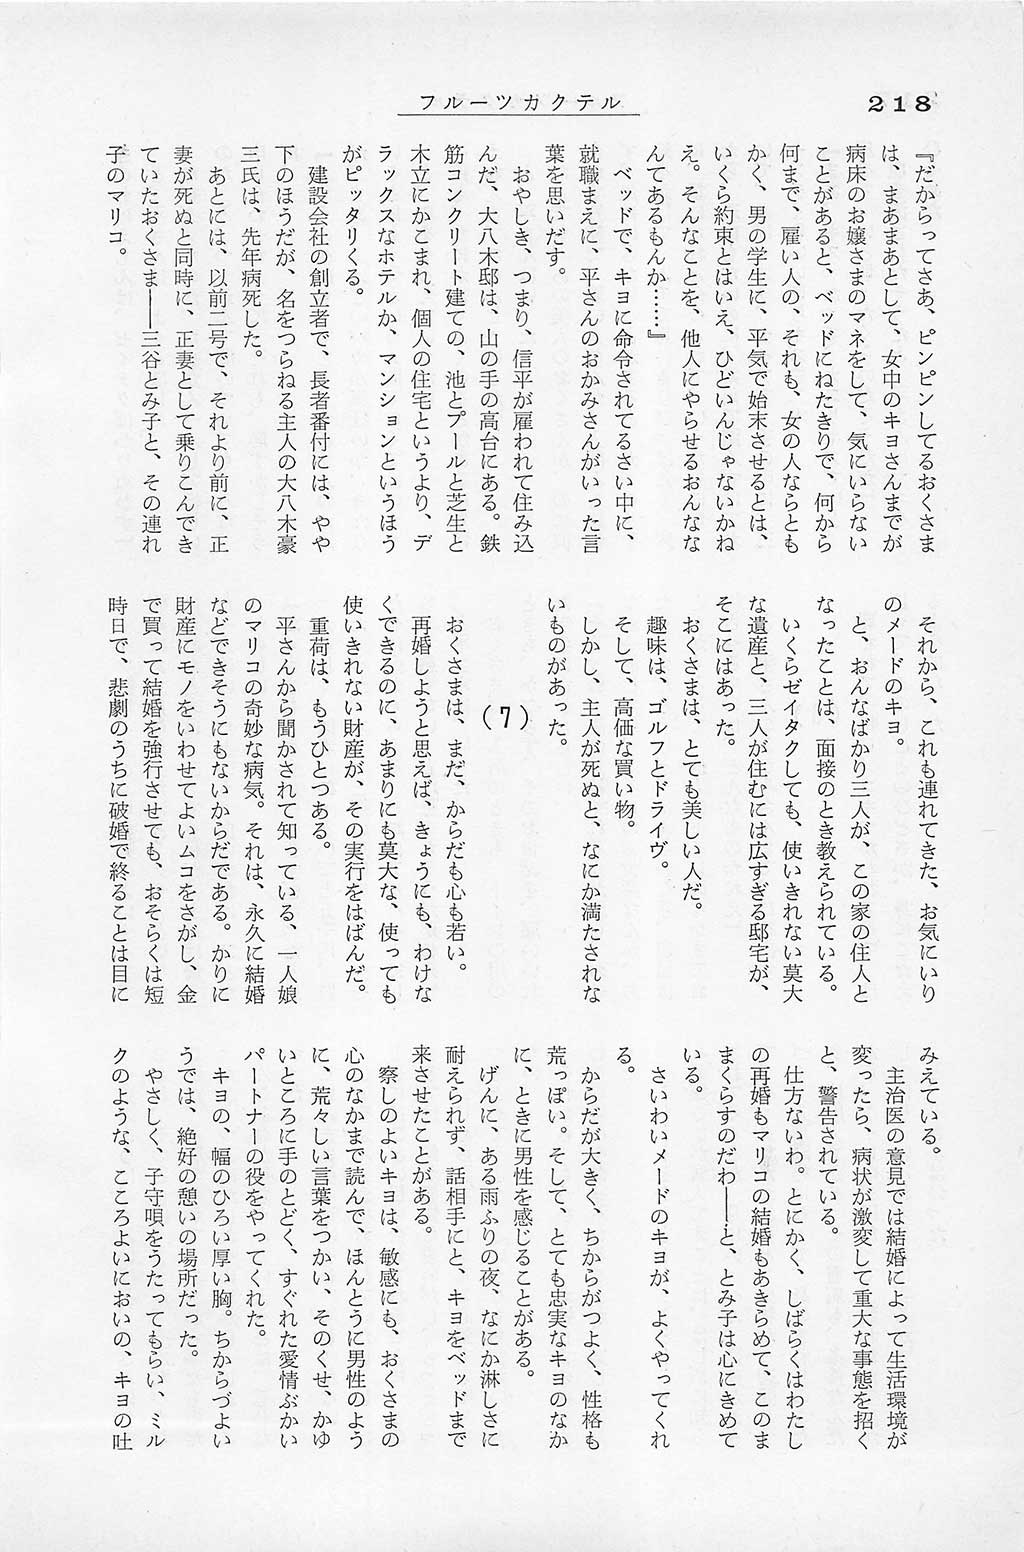 218
フルーツカクテル
『だからってさあ、ピンピンしてるおくさま
は、まあまあとして、女中のキヨさんまでが
病床のお嬢さまのマネをして、気にいらない
ことがあると、ベッドにねたきりで、何から
何まで、雇い人の、それも、女の人ならとも
かく、男の学生に、平気で始末させるとは、
いくら約束とはいえ、ひどいんじゃないかね
え。そんなことを、他人にやらせるおんなな
んてあるもんか……』
ベッドで、キヨに命令されてるさい中に、
就職まえに、平さんのおかみさんがいった言
葉を思いだす。
おやしき、つまり、信平が雇われて住み込
んだ、大八木邸は、山の手の高台にある。鉄
筋コンクリート建ての、池とプールと芝生と
木立にかこまれ、個人の住宅というより、デ
ラックスなホテルか、マンションというほう
がピッタリくる。
建設会社の創立者で、長者番付には、やや
下のほうだが、名をつらねる主人の大八木豪
三氏は、先年病死した。
あとには、以前二号で、それより前に、正
妻が死ぬと同時に、正妻として乗りこんでき
ていたおくさま――三谷とみ子と、その連れ
子のマリコ。
それから、これも連れてきた、お気にいり
のメードのキヨ。
と、おんなばかり三人が、この家の住人と
なったことは、面接のとき教えられている。
いくらゼイタクしても、使いきれない莫大
な遺産と、三人が住むには広すぎる邸宅が、
そこにはあった。
おくさまは、とても美しい人だ。
趣味は、ゴルフとドライヴ。
そして、高価な買い物。
しかし、主人が死ぬと、なにか満たされな
いものがあった。
(7)
おくさまは、まだ、からだも心も若い。
再婚しようと思えば、きょうにも、わけな
くできるのに、あまりにも莫大な、使っても
使いきれない財産が、その実行をはばんだ。
重荷は、もうひとつある。
平さんから聞かされて知っている、一人娘
のマリコの奇妙な病気。それは、永久に結婚
などできそうにもないからだである。かりに
財産にモノをいわせてよいムコをさがし、金
で買って結婚を強行させても、おそらくは短
時日で、悲劇のうちに破婚で終ることは目に
みえている。
主治医の意見では結婚によって生活環境が
変ったら、病状が激変して重大な事態を招く
と、警告されている。
仕方ないわ。とにかく、しばらくはわたし
の再婚もマリコの結婚もあきらめて、このま
まくらすのだわ――と、とみ子は心にきめて
いる。
さいわいメードのキヨが、よくやってくれ
る。
からだが大きく、ちからがつよく、性格も
荒っぽい。そして、とても忠実なキヨのなか
に、ときに男性を感じることがある。
げんに、ある雨ふりの夜、なにか淋しさに
耐えられず、話相手にと、キヨをベッドまで
来させたことがある。
察しのよいキヨは、敏感にも、おくさまの
心のなかまで読んで、ほんとうに男性のよう
に、荒々しい言葉をつかい、そのくせ、かゆ
いところに手のとどく、すぐれた愛情ぶかい
パートナーの役をやってくれた。
キヨの、幅のひろい厚い胸。ちからづよい
うでは、絶好の憩いの場所だった。
やさしく、子守唄をうたってもらい、ミル
クのような、こころよいにおいの、キヨの吐